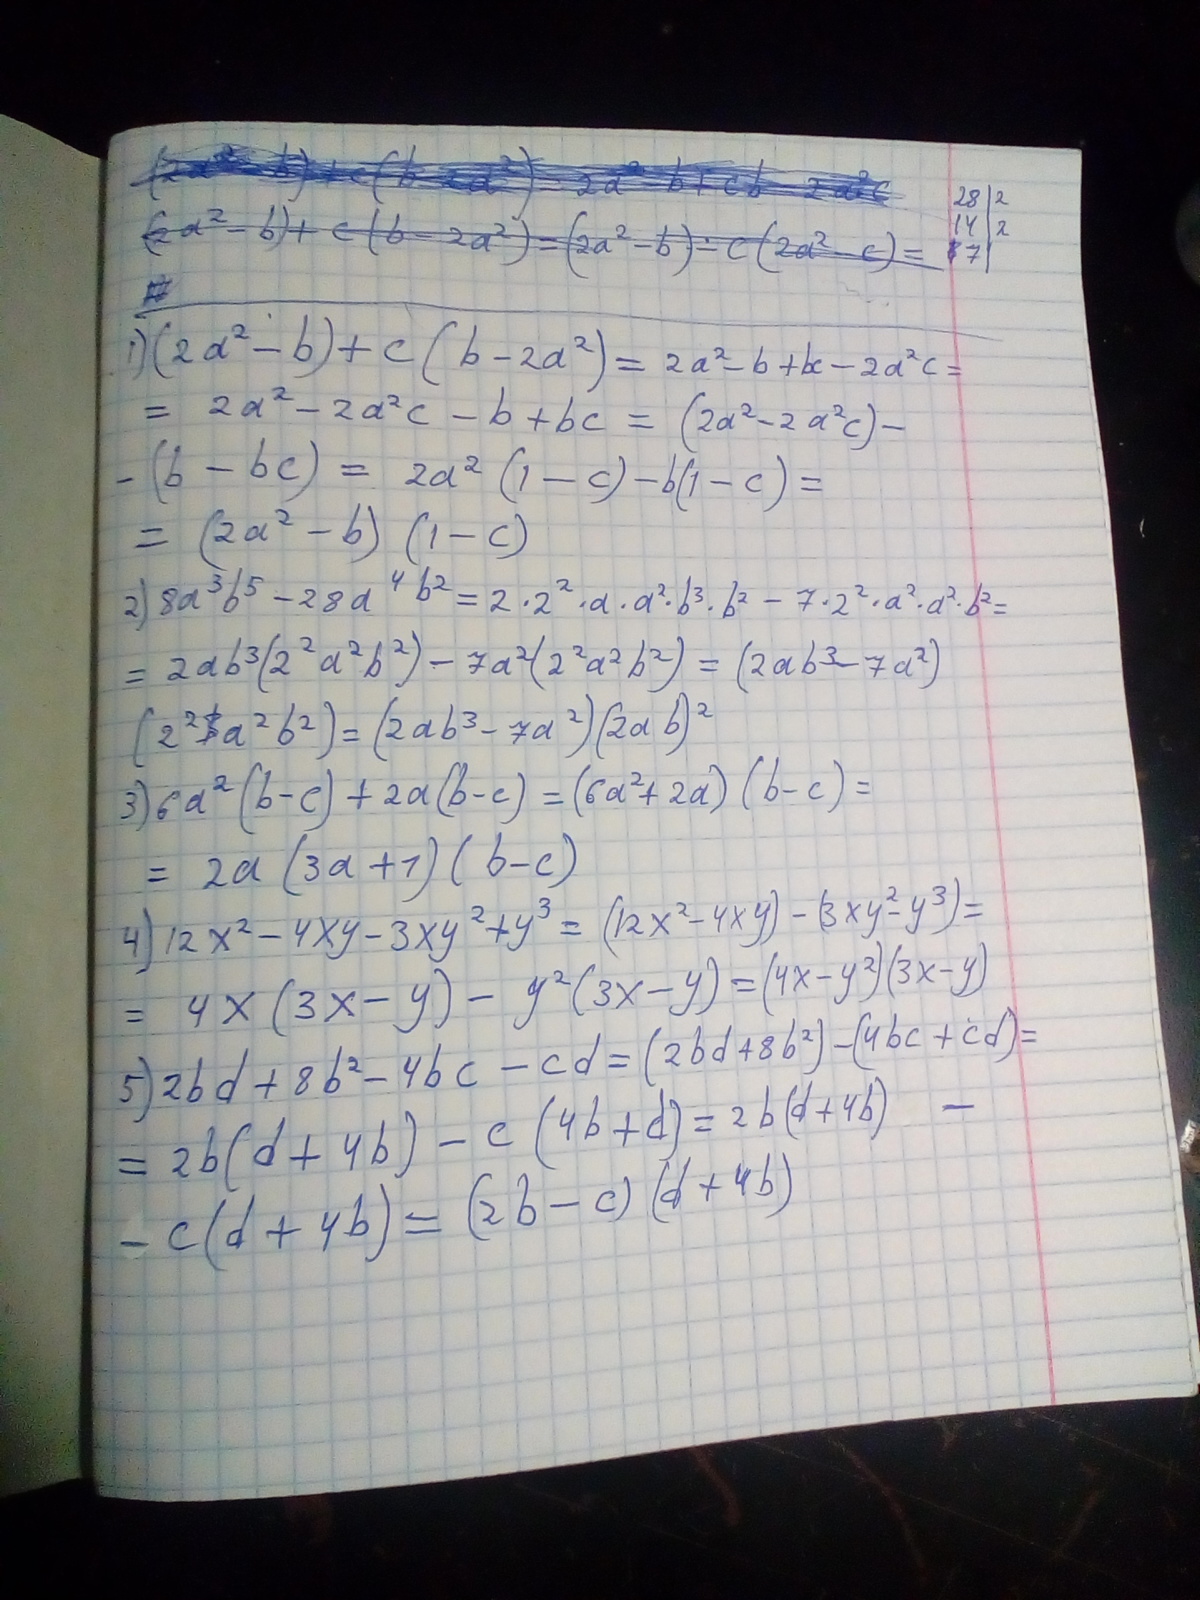 (2a² - b) + c(b - 2a²) = 2a² - b + cb - 2a²c
(2a² - b) + c(b - 2a²) = (2a² - b) - c(2a² - c) =
28|2
14|2
7|
1) (2a² - b) + c(b - 2a²) = 2a² - b + bc - 2a²c =
= 2a² - 2a²c - b + bc = (2a² - 2a²c) -
- (b - bc) = 2a²(1 - c) - b(1 - c) =
= (2a² - b)(1 - c)
2) 8a³b⁵ - 28a⁴b² = 2·2²·a·a²·b³·b² - 7·2²·a²·a²·b² =
= 2ab³(2²a²b²) - 7a²(2²a²b²) = (2ab³ - 7a²)
(2²a²b²) = (2ab³ - 7a²)(2ab)²
3) 6a²(b - c) + 2a(b - c) = (6a² + 2a)(b - c) =
= 2a(3a + 1)(b - c)
4) 12x² - 4xy - 3xy² + y³ = (12x² - 4xy) - (3xy² - y³) =
= 4x(3x - y) - y²(3x - y) = (4x - y²)(3x - y)
5) 2bd + 8b² - 4bc - cd = (2bd + 8b²) - (4bc + cd) =
= 2b(d + 4b) - c(4b + d) = 2b(d + 4b) -
- c(d + 4b) = (2b - c)(d + 4b)